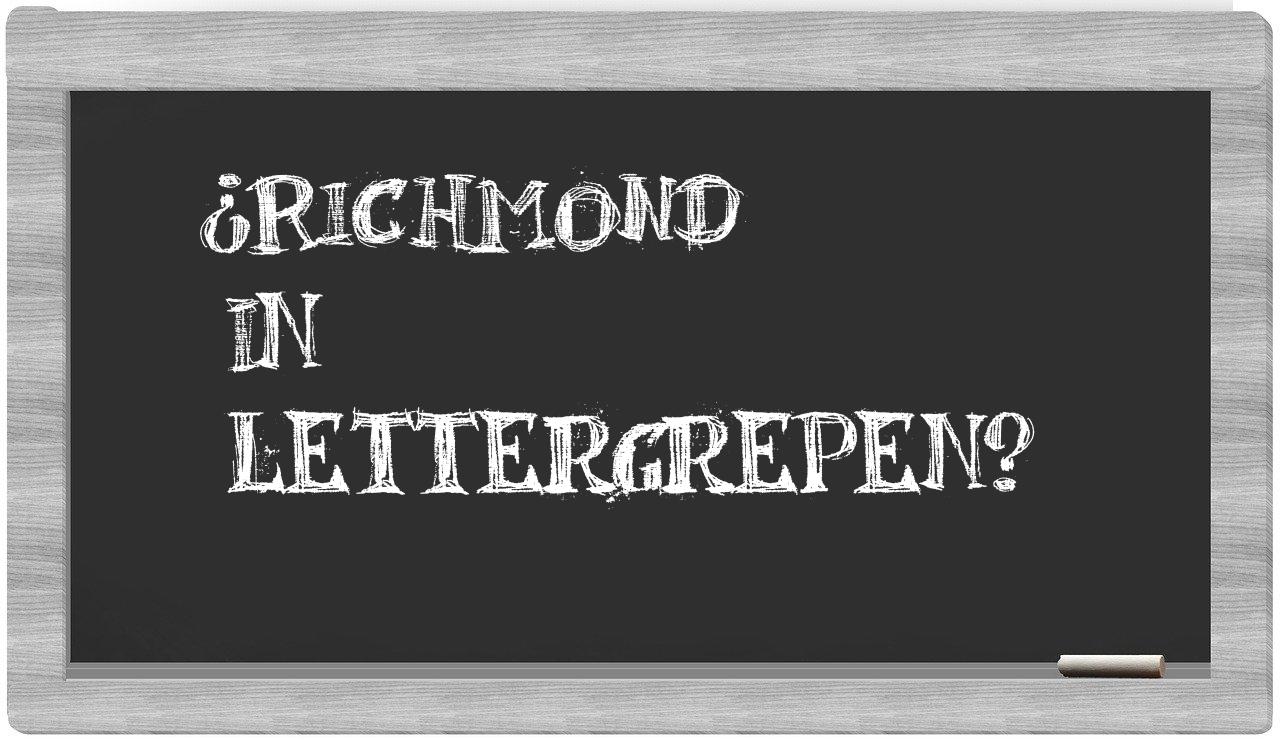 ¿RICHMOND
IN
LETTERGREPEN?